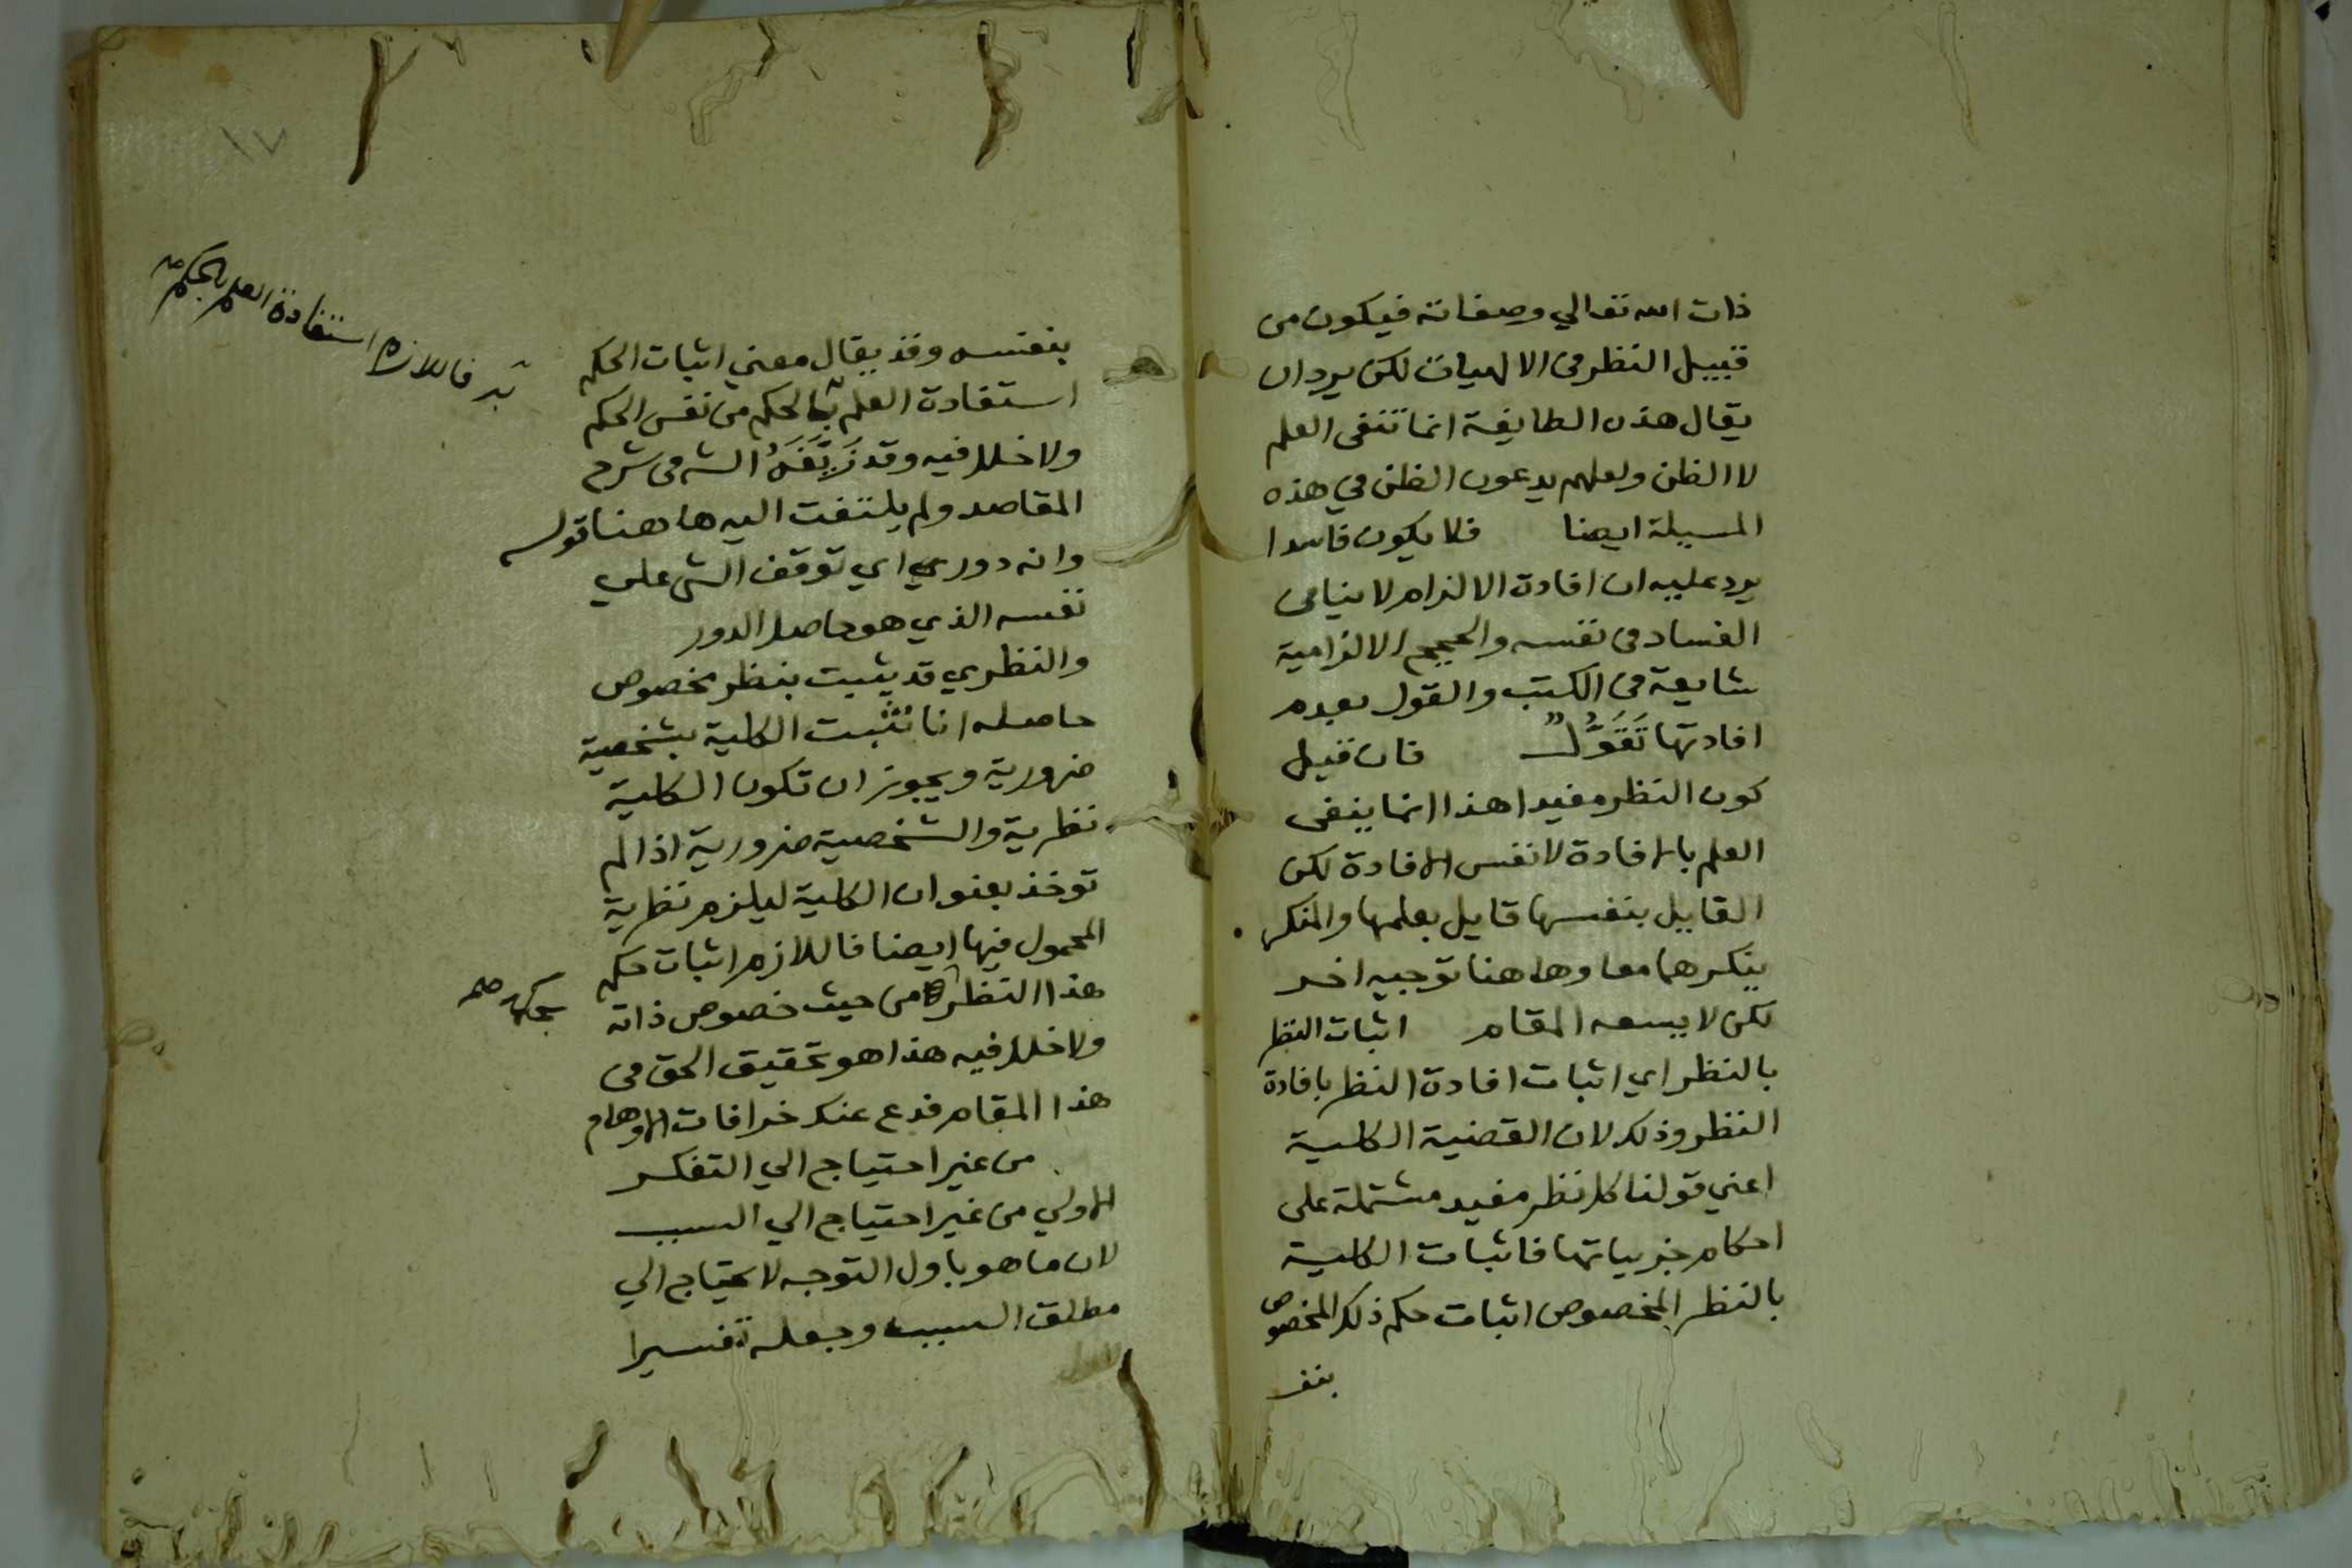 ذات الله تعالي وصفاته فيكون من
قبيل النظر فى الالهيات لكن يرد ان
يقال هذه الطايفة انما تنفى العلم
لا الظن ولعلهم يدعون الظن في هذه
المسيلة ايضا فلا يكون فاسدا
يرد عليه ان افادة الالزام لا ينافى
الفساد فى نفسه والحجج الالزامية
شايعة فى الكتب والقول بعدم
افادتها تَقَوُّلٌ فان قيل
كون النظر مفيدا هذا انما ينفى
العلم بالافادة لا نفس الافادة لكن
القايل بنفسها قايل بعلمها والمنكر
ينكرهما معا وها هنا توجيه اخر
لكن لا يسعه المقام اثبات النظر
بالنظر اي اثبات افادة النظر بافادة
النظر وذلك لان القضية الكلية
اعني قولنا كل نظر مفيد مشتملة على
احكام جزيياتها فاثبات الكلية
بالنظر المخصوص اثبات حكم ذلك المخصوص
بنف
١٧
بنفسه وقد يقال معني اثبات الحكم
استفادة العلم بالحكم من نفس الحكم
فاللازم استفادة العلم بالحكم
ولا خلل فيه وقد زَيَّفَهُ الش فى شرح
المقاصد ولم يلتفت اليه ها هنا قوله
وانه دور اي توقف الشى علي
نفسه الذي هو حاصل الدور
والنظري قد يثبت بنظر مخصوص
حاصله انا نثبت الكلية بشخصية
ضرورية ويجوز ان تكون الكلية
نظرية والشخصية ضرورية اذا لم
توخذ بعنوان الكلية ليلزم نظرية
المحمول فيها ايضا فاللازم اثبات حكم
هذا النظر من حيث خصوص ذاته
ولا خلل فيه هذا هو تحقيق الحق فى
هذا المقام فدع عنك خرافات الاوهام
من غير احتياج الي التفكر
الاولي من غير احتياج الي السبب
لان ما هو باول التوجه لا يحتاج الي
مطلق السبب وجعله تفسيرا